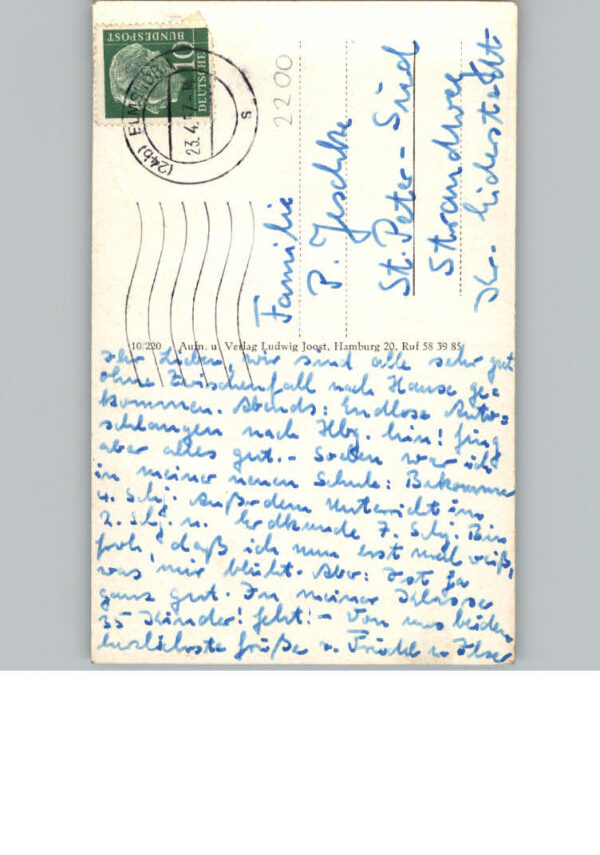 DEUTSCHE
BUNDESPOST
10
(24b) ELMSHORN
23.4.57
s
2200
Familie
P. Jeschke
St. Peter-Süd
Strandweg
Kr. Eiderstedt
10/220 Aufn. u. Verlag Ludwig Joost, Hamburg 20. Ruf 58 39 85
Ihr Lieben, wir sind alle sehr gut
ohne Zwischenfall nach Hause ge=
kommen. Abends: Endlose Auto=
schlangen nach Hbg. hin! Ging
aber alles gut. - Soeben war ich
in meiner neuen Schule: Bekomme
4. Schj. Außerdem Unterricht im
2. Schj. u. Erdkunde 7. Schj. Bin
froh, daß ich nun erst mal weiß,
was mir blüht. Aber: Ist ja
ganz gut. In meiner Klasse
35 Kinder! Geht! - Von uns beiden
herzlichste Grüße v. Friedel u. Ilse